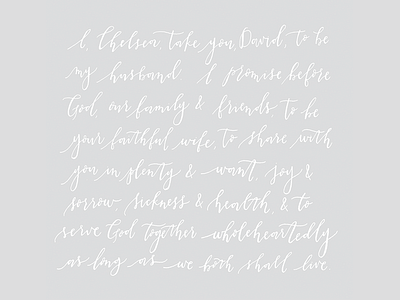 I, Chelsea, take you, David, to be
my husband I promise before
God, our family & friends, to be
your faithful wife, to share with
you in plenty & want, joy &
sorrow, sickness & health, & to
serve God together wholeheartedly
as long as we both shall live